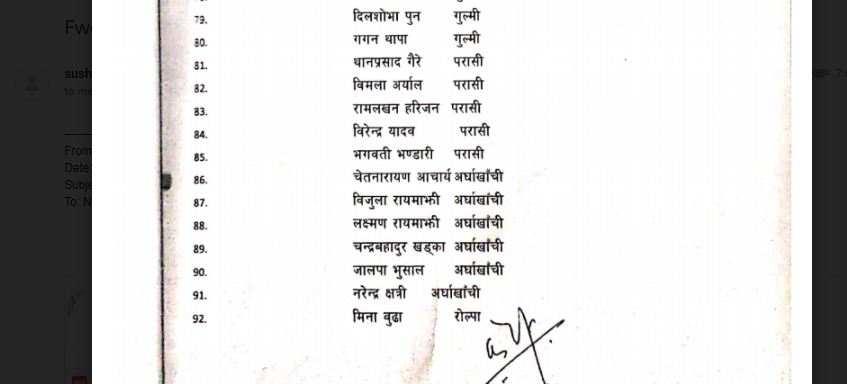 Fw
79. दिलशोभा पुन गुल्मी
80. गगन थापा गुल्मी
81. थानप्रसाद गैरे परासी
sush
82. विमला अर्याल परासी
to me
83. रामलखन हरिजन परासी
84. विरेन्द्र यादव परासी
From
85. भगवती भण्डारी परासी
Date:
86. चेतनारायण आचार्य अर्घाखाँची
Subje
87. विजुला रायमाझी अर्घाखाँची
To: N
88. लक्ष्मण रायमाझी अर्घाखाँची
89. चन्द्रबहादुर खड्का अर्घाखाँची
90. जालपा भुसाल अर्घाखाँची
91. नरेन्द्र क्षत्री अर्घाखाँची
92. मिना वुढा रोल्पा